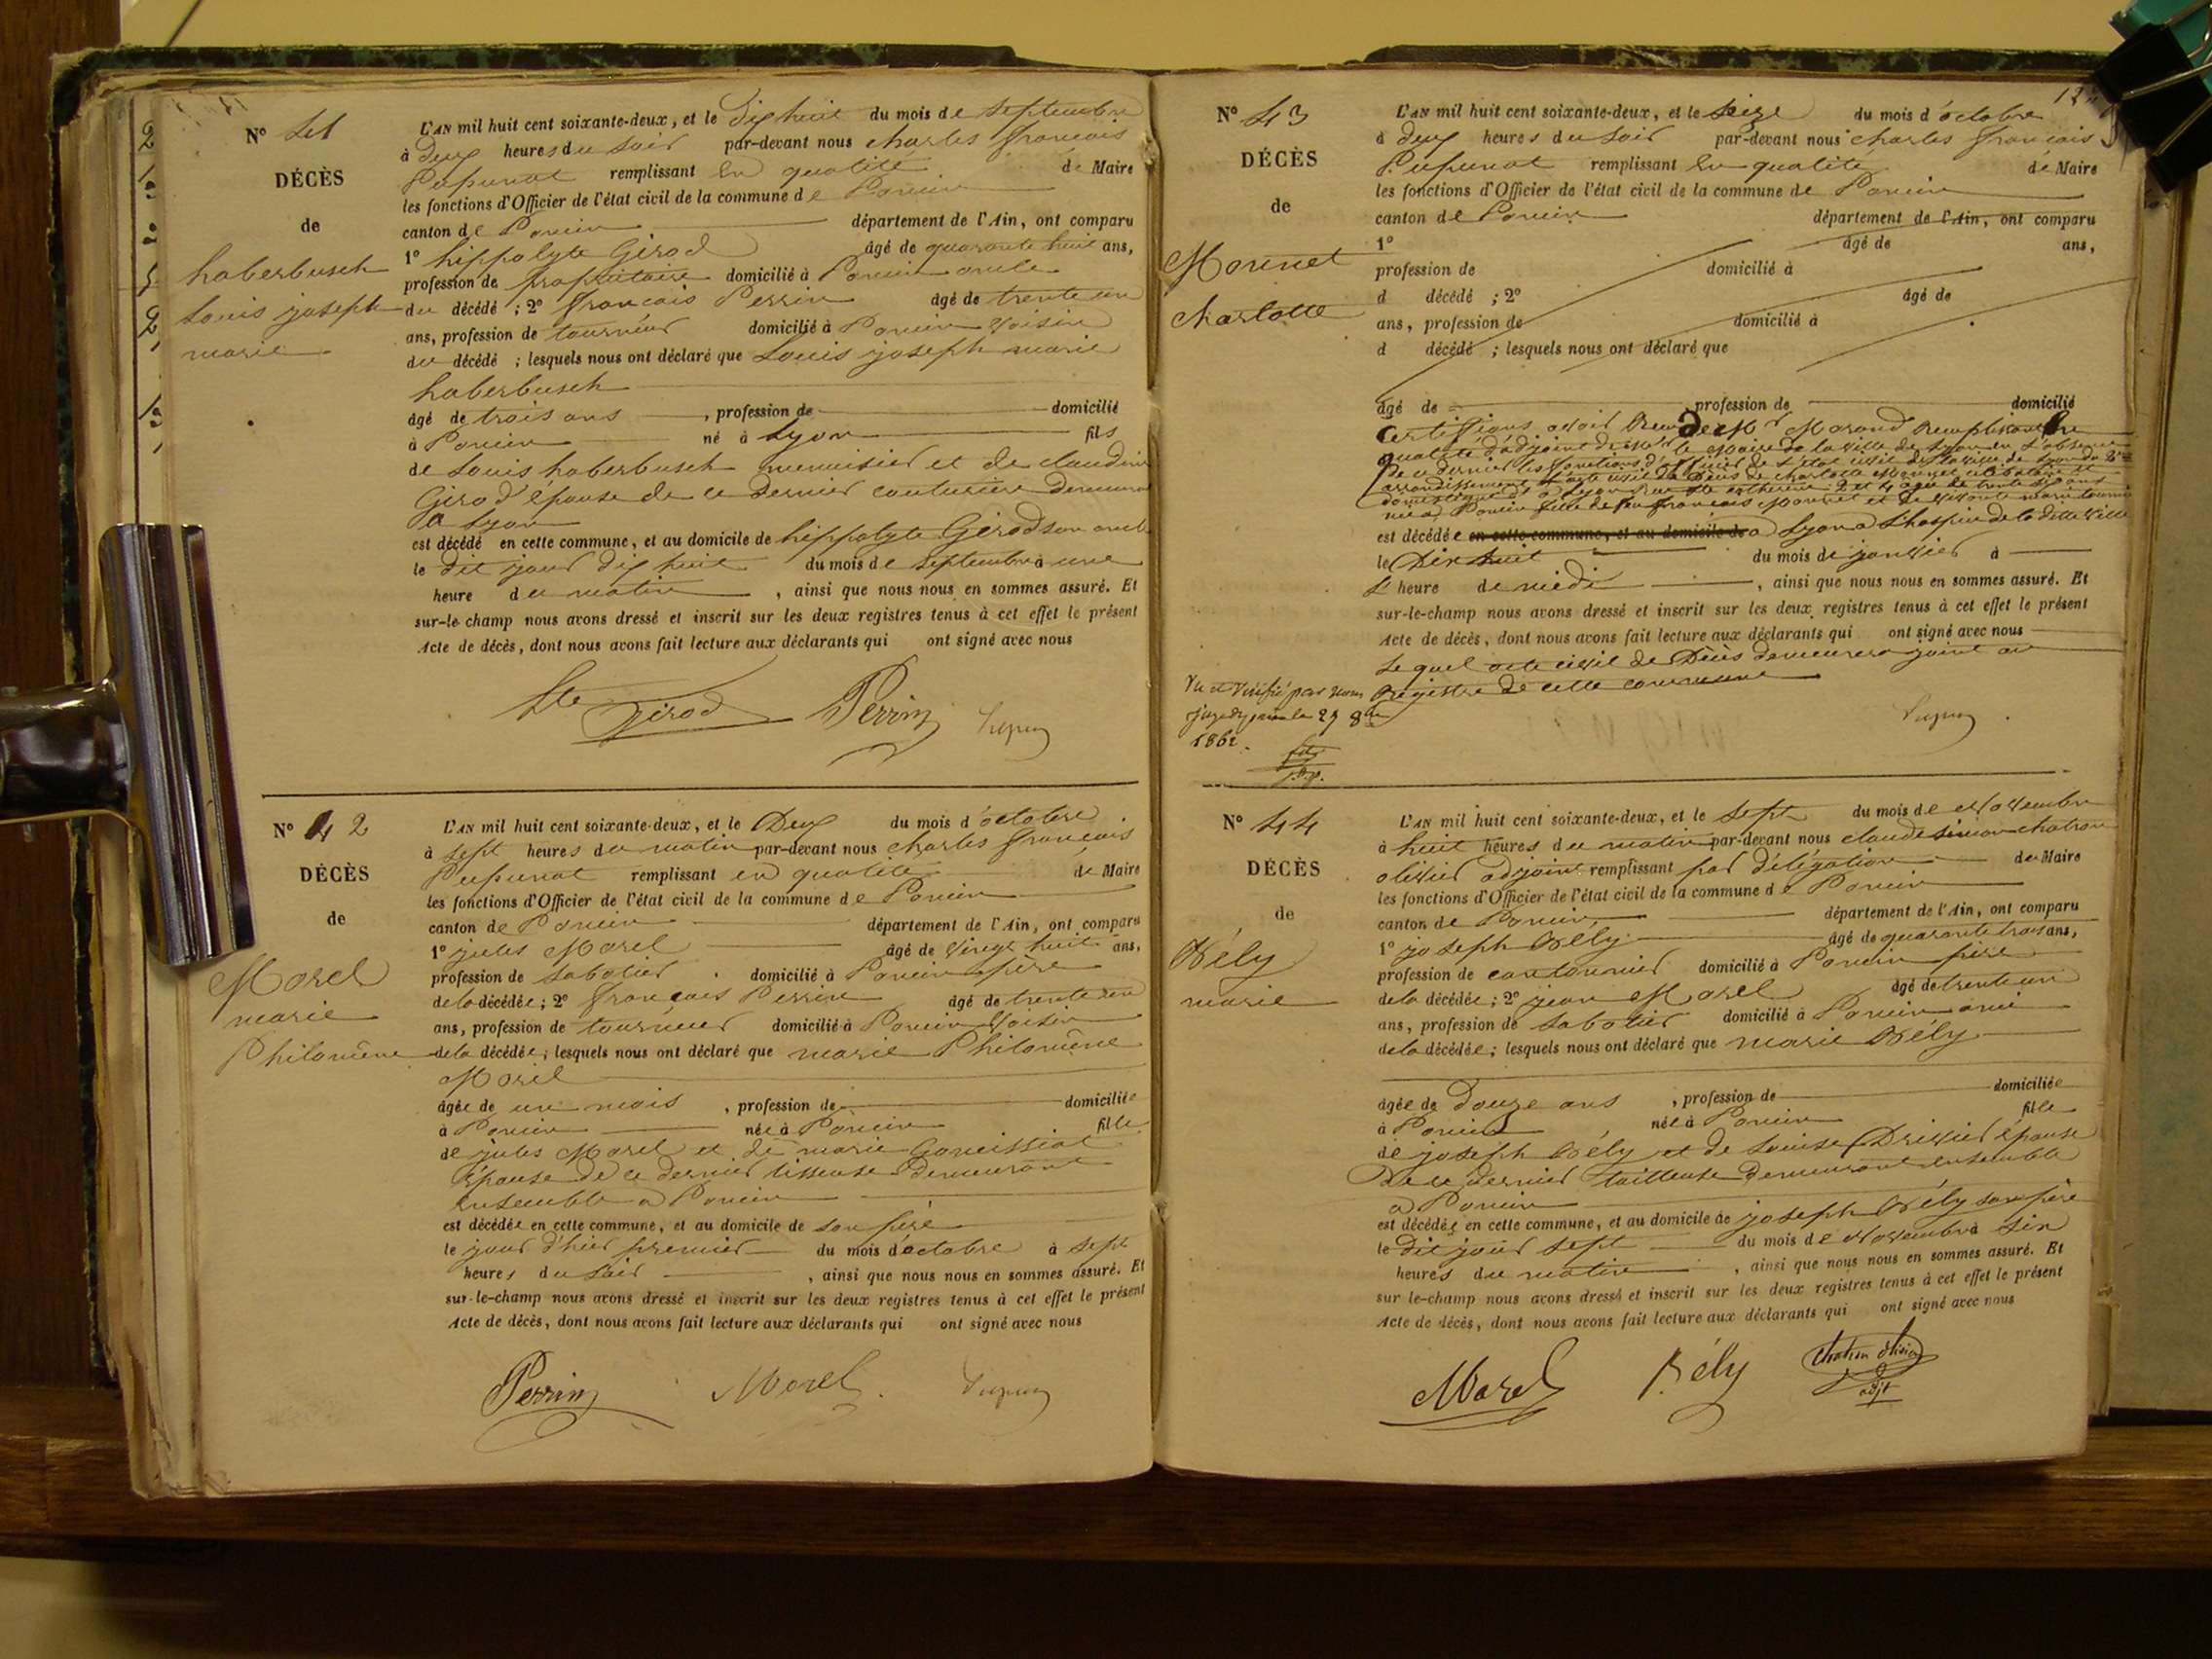 N° 41
DÉCÈS
de
haberbusch
Louis joseph
marie
L'AN mil huit cent soixante-deux, et le Dix huit du mois de septembre
à Deux heures du soir par-devant nous charles françois
Pupunat remplissant en qualité de Maire
les fonctions d'Officier de l'état civil de la commune de Poncin
canton de Poncin département de l'Ain, ont comparu
1° hippolyte Girod âgé de quarante huit ans,
profession de propriétaire domicilié à Poncin oncle
du décédé ; 2° françois Perrin âgé de trente un
ans, profession de tourneur domicilié à Poncin voisin
du décédé ; lesquels nous ont déclaré que Louis joseph marie
haberbusch
âgé de trois ans , profession de domicilié
à Poncin né à Lyon fils
de Louis haberbusch menuisier et de claudine
Girod épouse de ce dernier couturière demeurant
a Lyon
est décédé en cette commune, et au domicile de hippolyte Girod son oncle
le dit jour dix huit du mois de septembre à une
heure du matin , ainsi que nous nous en sommes assuré. Et
sur-le-champ nous avons dressé et inscrit sur les deux registres tenus à cet effet le présent
Acte de décès, dont nous avons fait lecture aux déclarants qui ont signé avec nous
Hte Girod Perrin
N° 42
DÉCÈS
de
Morel
marie
Philomène
L'AN mil huit cent soixante-deux, et le Deux du mois d'octobre
à sept heures du matin par-devant nous charles françois
Pupunat remplissant en qualité de Maire
les fonctions d'Officier de l'état civil de la commune de Poncin
canton de Poncin département de l'Ain, ont comparu
1° jules Morel âgé de vingt huit ans,
profession de sabotier domicilié à Poncin père
de la décédée ; 2° françois Perrin âgé de trente un
ans, profession de tourneur domicilié à Poncin voisin
de la décédée ; lesquels nous ont déclaré que marie Philomène
Morel
âgée de un mois , profession de domiciliée
à Poncin née à Poncin fille
de jules Morel et de marie Goncissiat
épouse de ce dernier tisseuse demeurant
ensemble a Poncin
est décédée en cette commune, et au domicile de son père
le jour d'hier premier du mois d'octobre à sept
heures du soir , ainsi que nous nous en sommes assuré. Et
sur-le-champ nous avons dressé et inscrit sur les deux registres tenus à cet effet le présent
Acte de décès, dont nous avons fait lecture aux déclarants qui ont signé avec nous
Perrin Morel
N° 43
DÉCÈS
de
Monnet
charlotte
L'AN mil huit cent soixante-deux, et le seize du mois d'octobre
à deux heures du soir par-devant nous charles françois
Pupunat remplissant en qualité de Maire
les fonctions d'Officier de l'état civil de la commune de Poncin
canton de Poncin département de l'Ain, ont comparu
1° âgé de ans,
profession de domicilié à
d décédé ; 2° âgé de
ans, profession de domicilié à
d décédé ; lesquels nous ont déclaré que
âgé de profession de domicilié
Certifions avoir Reçu de Mr Morand Remplissant en
qualité d'adjoint de Mr le Maire de la ville de Lyon en l'absence
de ce dernier les fonctions d'officier de l'état civil de la ville de Lyon du 2me
arrondissement l'acte civil de Décès de charlotte Monnet célibataire
domestique à Lyon rue Ste catherine âgée de trente ans
née à Poncin fille de feu françois Monnet et de marie
est décédée en cette commune, et au domicile de à Lyon à L'hospice de la dite ville
le Dix huit du mois de janvier à
L'heure de midi , ainsi que nous nous en sommes assuré. Et
sur-le-champ nous avons dressé et inscrit sur les deux registres tenus à cet effet le présent
Acte de décès, dont nous avons fait lecture aux déclarants qui ont signé avec nous
Lequel acte civil de Décès demeurera joint au
Registre de cette commune
Vu et vérifié par nous
juge de paix le 29 8bre
1862.
N° 44
DÉCÈS
de
Bély
marie
L'AN mil huit cent soixante-deux, et le sept du mois de Novembre
à huit heures du matin par-devant nous claude simon chatron
olivier adjoint remplissant par délégation du Maire
les fonctions d'Officier de l'état civil de la commune de Poncin
canton de Poncin département de l'Ain, ont comparu
1° joseph Bély âgé de quarante trois ans,
profession de cantonnier domicilié à Poncin père
de la décédée ; 2° jean Morel âgé de trente un
ans, profession de sabotier domicilié à Poncin ami
de la décédée ; lesquels nous ont déclaré que marie Bély
âgée de Douze ans , profession de domiciliée
à Poncin , née à Poncin fille
de joseph Bély et de Louise Drivier épouse
De ce dernier tailleuse demeurant ensemble
a Poncin
est décédée en cette commune, et au domicile de joseph Bély son père
le dit jour sept du mois de Novembre à six
heures du matin , ainsi que nous nous en sommes assuré. Et
sur le-champ nous avons dressé et inscrit sur les deux registres tenus à cet effet le présent
Acte de décès, dont nous avons fait lecture aux déclarants qui ont signé avec nous
Morel Bély chatron olivier
adjt